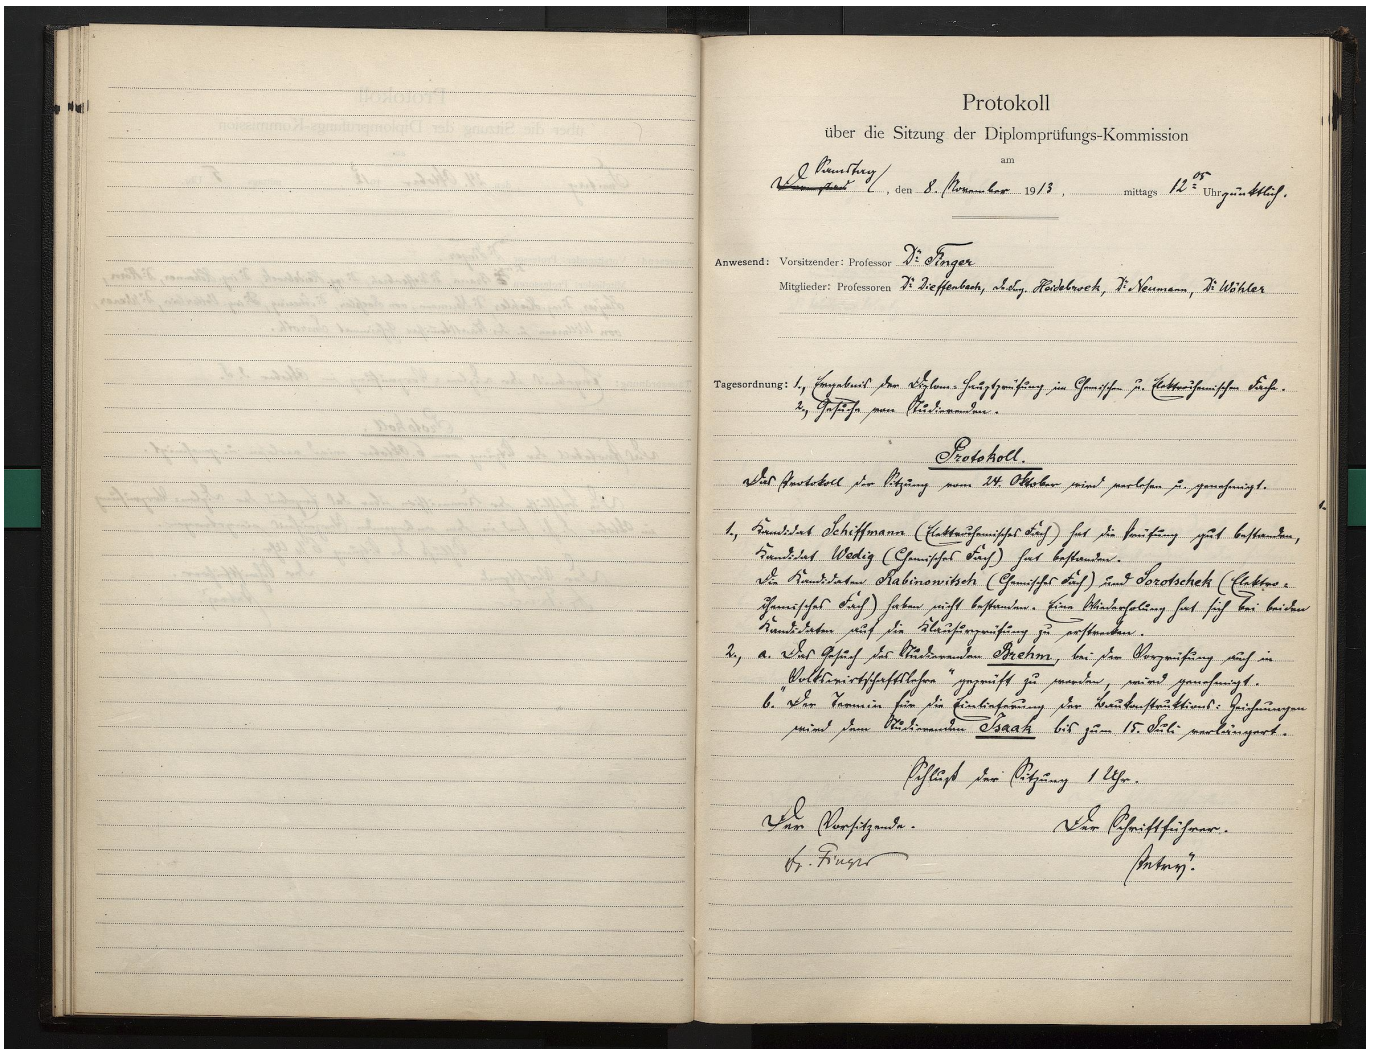 Protokoll
über die Sitzung der Diplomprüfungs-Kommission
am
Samstag
, den 8. November 1913, mittags 12 05 Uhr pünktlich.
Anwesend: Vorsitzender: Professor Dr. Finger
Mitglieder: Professoren Dr. Dieffenbach, Dr. Ing. Heidebroek, Dr. Neumann, Dr. Wöhler
Tagesordnung: 1., Ergebnis der Diplom-Hauptprüfung im Chemischen u. Elektrochemischen Fache.
2., Gesuche von Studierenden.
Protokoll.
Das Protokoll der Sitzung vom 24. Oktober wird verlesen u. genehmigt.
1., Kandidat Schiffmann (Elektrochemisches Fach) hat die Prüfung gut bestanden,
Kandidat Wedig (Chemisches Fach) hat bestanden.
Die Kandidaten Rabinowitsch (Chemisches Fach) und Sorotschek (Elektro-
chemisches Fach) haben nicht bestanden. Eine Wiederholung hat sich bei beiden
Kandidaten auf die Klausurprüfung zu erstrecken.
2., a. Das Gesuch des Studierenden Brehm, bei der Vorprüfung auch in
„Volkswirtschaftslehre“ geprüft zu werden, wird genehmigt.
b. Der Termin für die Einlieferung der Baukonstruktions-Zeichnungen
wird dem Studierenden Isaak bis zum 15. Juli verlängert.
Schluß der Sitzung 1 Uhr.
Der Vorsitzende. Der Schriftführer.
Finger Petry.